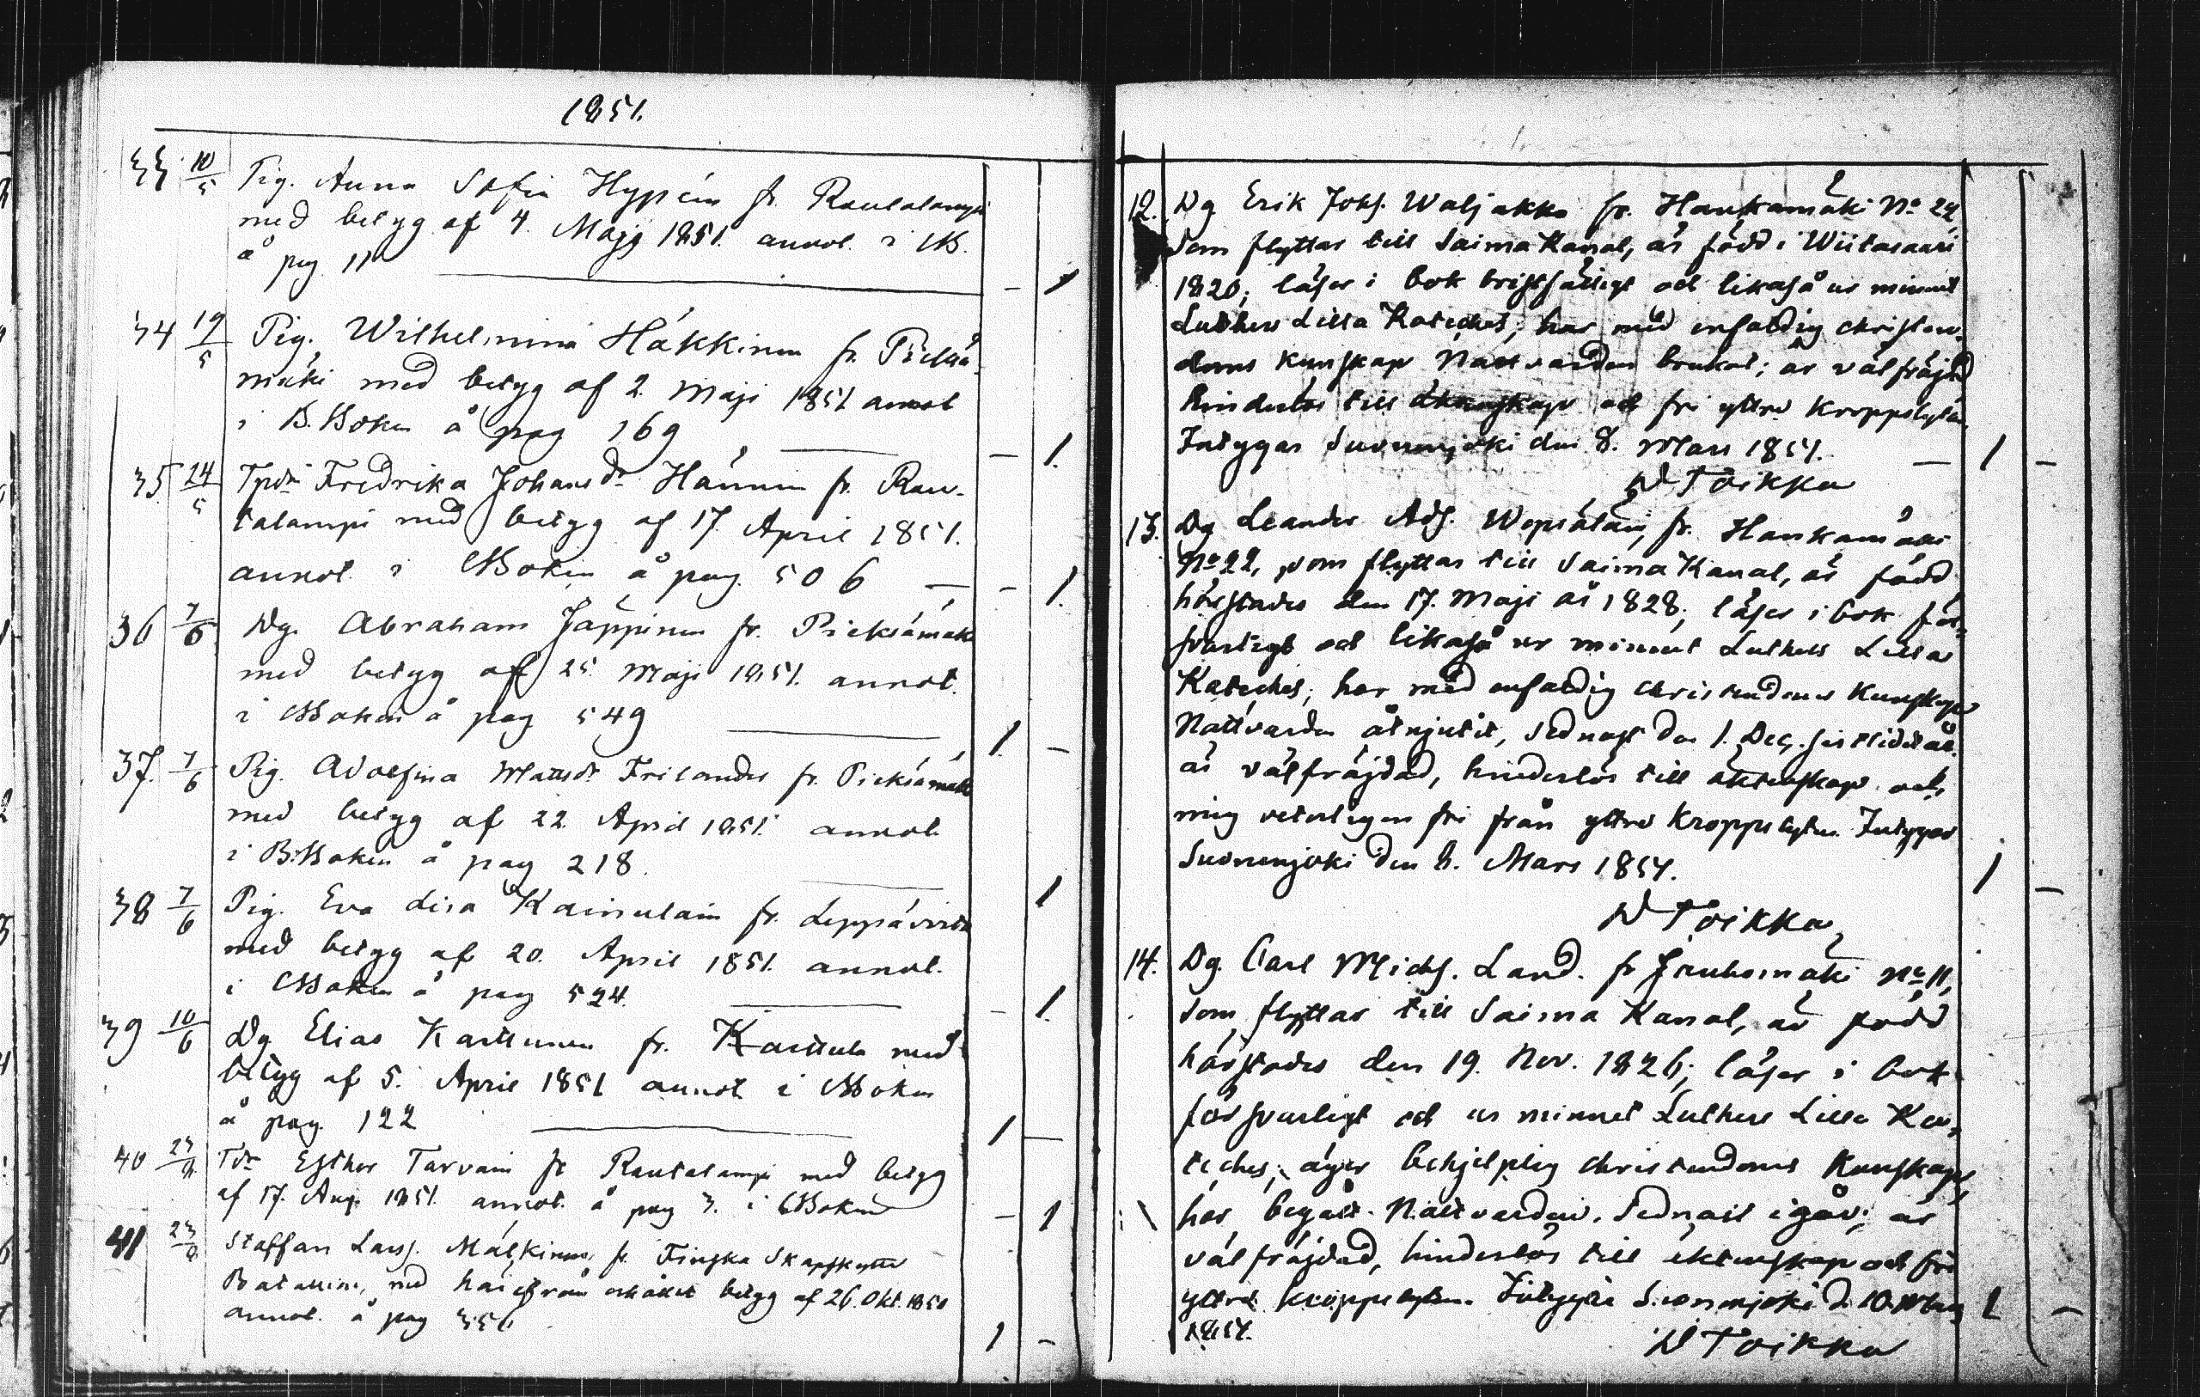 1851.
33 10/5 Pig. Anna Sofia Hyppéin fr. Rautalampi
med betyg af 4. Maji 1851. annot. i
å pag. 11
— 1
34 19/5 Pig. Wilhelmina Häkkinen fr. Pieksä-
mäki med betyg af 2. Maji 1851 annot
i B.Boken å pag 169 — 1.
35 24/5 Fredrika Johans dr Hännin fr. Rau-
talampi med betyg af 17. April 1851.
annot. i Boken å pag. 506 — 1.
36 7/6 Dg. Abraham Jäppinen fr. Pieksämäki
med betyg af 25. Maji 1851. annot.
i Boken å pag 549 1 —
37. 7/6 Pig. Adolfina Mattsdr Frilander fr. Pieksämäki
med betyg af 22. April 1851. annot.
i B.Boken å pag 218. 1
38 7/6 Pig. Eva Lisa Kainulain fr. Leppävirta
med betyg af 20. April 1851. annot.
i Boken å pag 524. — 1.
39 10/6 Dg Elias Karttunen fr. Karttula med
betyg af 5. April 1851 annot i Boken
å pag. 122 1 —
40 Esther Tarvain fr Rautalampi med betyg
af 17. Aug. 1851. annot. å pag 3. i Boken — 1
41 Staffan Larsf. Mälkinen fr. Finska Skarpskytte
Bataillon, med härifrån erhållet betyg af 26. Okt. 1850
annot. å pag 1 —
12. Dg Erik Johf. Waljakka fr. Hankamäki No 24,
som flyttar till Saima Kanal, är född i Wiitasaari
1820; läser i bok bristfälligt och likaså ur minnet
Luthers Lilla Kateches; har med enfaldig christen-
doms kunskap Nattvarden brukat; är välfräjdad
hinderlös till äktenskap och fri yttre kroppslyten.
Intygar Suonenjoki den 8. Mars 1851. — 1 —
Toikka
13. Dg Leander Adf. Wepsäläin, fr. Hankamäki
No 22, som flyttar till Saima Kanal, är född
härstades den 17. Maji år 1828; läser i bok för-
svarligt och likaså ur minnet Luthers Lilla
Kateches; har med enfaldig christendoms kunskap
Nattvarden åtnjutit, sednast den 1. Dec. sistlidet år.
är välfräjdad, hinderlös till äktenskap och,
mig veterligen fri från yttre kroppslyten. Intygar
Suonenjoki den 8. Mars 1851. 1 —
Toikka
14. Dg. Carl Michf. Land. fr Jauhomäki No 11,
som flyttar till Saima Kanal, är född
härstades den 19. Nov. 1826; läser i bok
försvarligt och ur minnet Luthers Lilla Ka-
teches; äger behjelplig christendoms kunskap,
har begått Nattvarden, sednast igår; är
välfräjdad, hinderlös till äktenskap och fri
yttre kroppslyten. Intygar Suonenjoki d. 10. Mars 1 —
1851.
Toikka